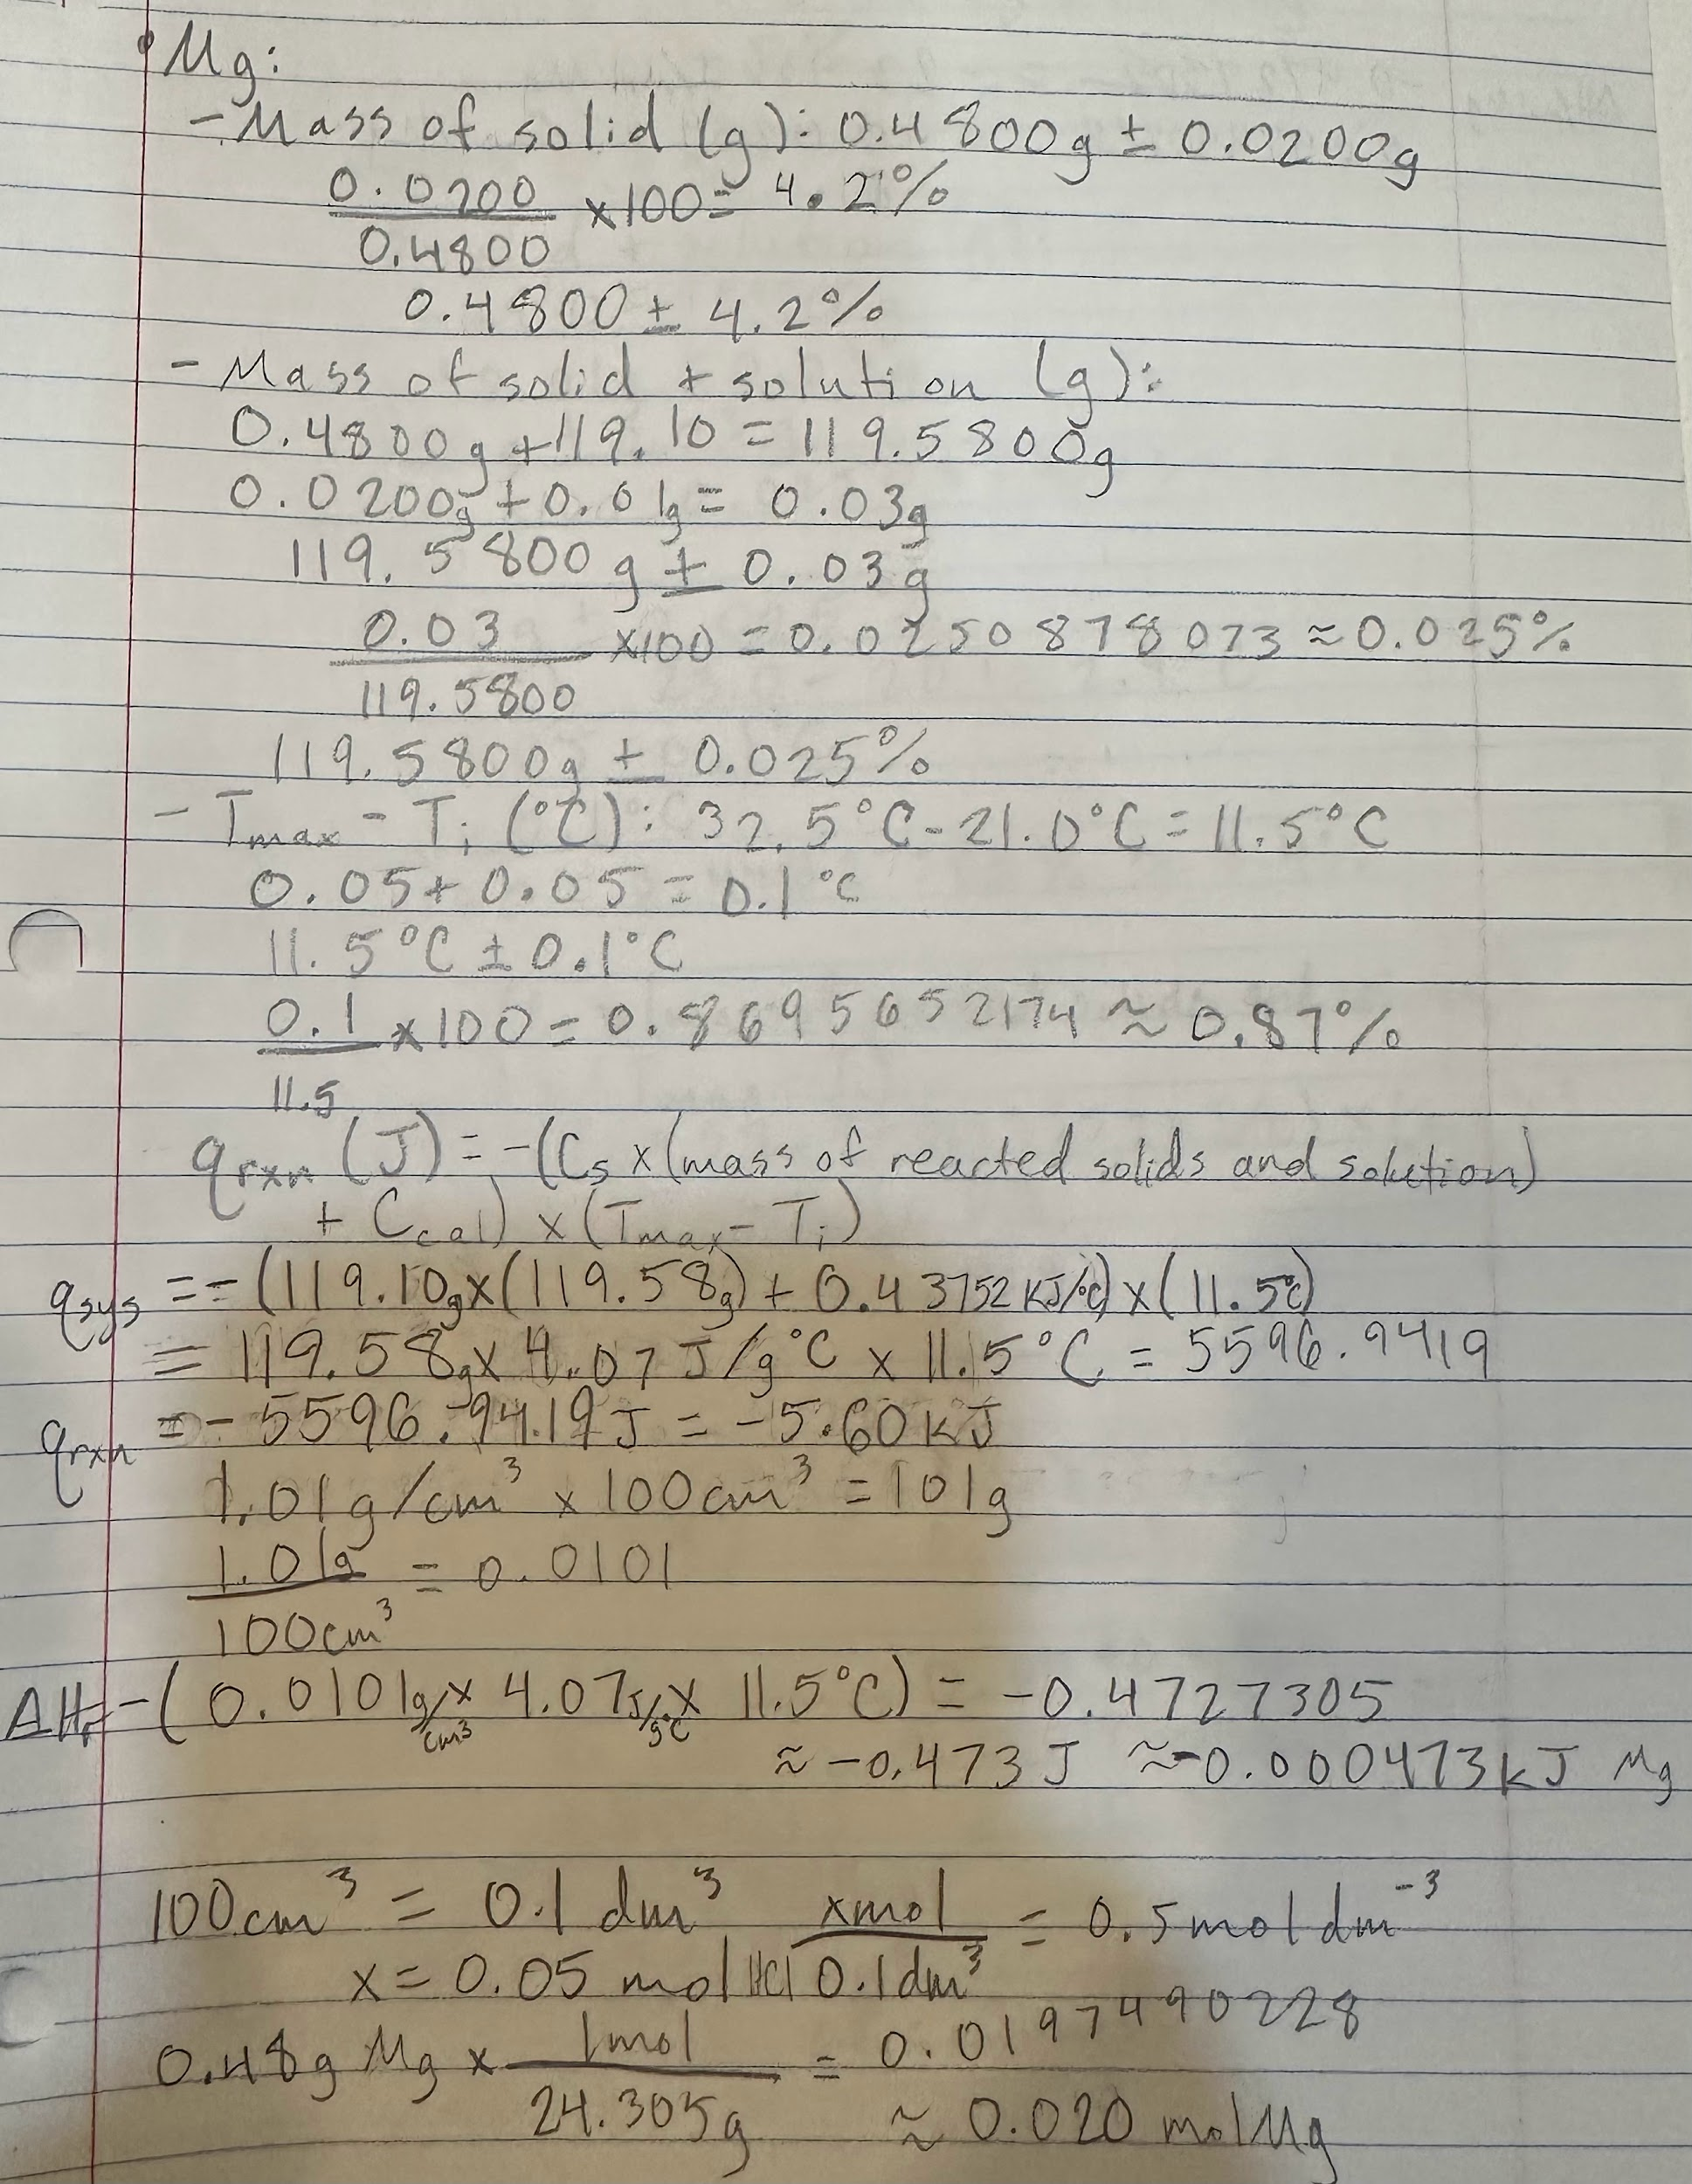 • Mg:
- Mass of solid (g): 0.4800g ± 0.0200g
0.0200/0.4800 x100= 4.2%
0.4800 ± 4.2%
- Mass of solid + solution (g):
0.4800g +119.10 = 119.5800g
0.0200g + 0.01g = 0.03g
119.5800g ± 0.03g
0.03/119.5800 x100 = 0.0250878073 ≈ 0.025%
119.5800g ± 0.025%
- Tmax - Ti (°C): 32.5°C - 21.0°C = 11.5°C
0.05 + 0.05 = 0.1°C
11.5°C ± 0.1°C
0.1/11.5 x100 = 0.8695652174 ≈ 0.87%
qrxn (J) = -(Cs x (mass of reacted solids and solution)
+ Ccal) x (Tmax - Ti)
qsys = -(119.10g x (119.58g) + 0.43752 kJ/°C) x (11.5°C)
= 119.58g x 4.07 J/g°C x 11.5°C = 5596.9419
qrxn = -5596.9419J = -5.60kJ
1.01g/cm³ x 100cm³ = 101g
1.01g/100cm³ = 0.0101
ΔHr -(0.0101g/cm³ x 4.07J/g°C x 11.5°C) = -0.4727305
≈ -0.473J ≈ -0.000473kJ Mg
100cm³ = 0.1dm³ xmol/0.1dm³ = 0.5moldm⁻³
x = 0.05 mol HCl
0.48g Mg x 1mol/24.305g = 0.0197490228
≈ 0.020 mol Mg